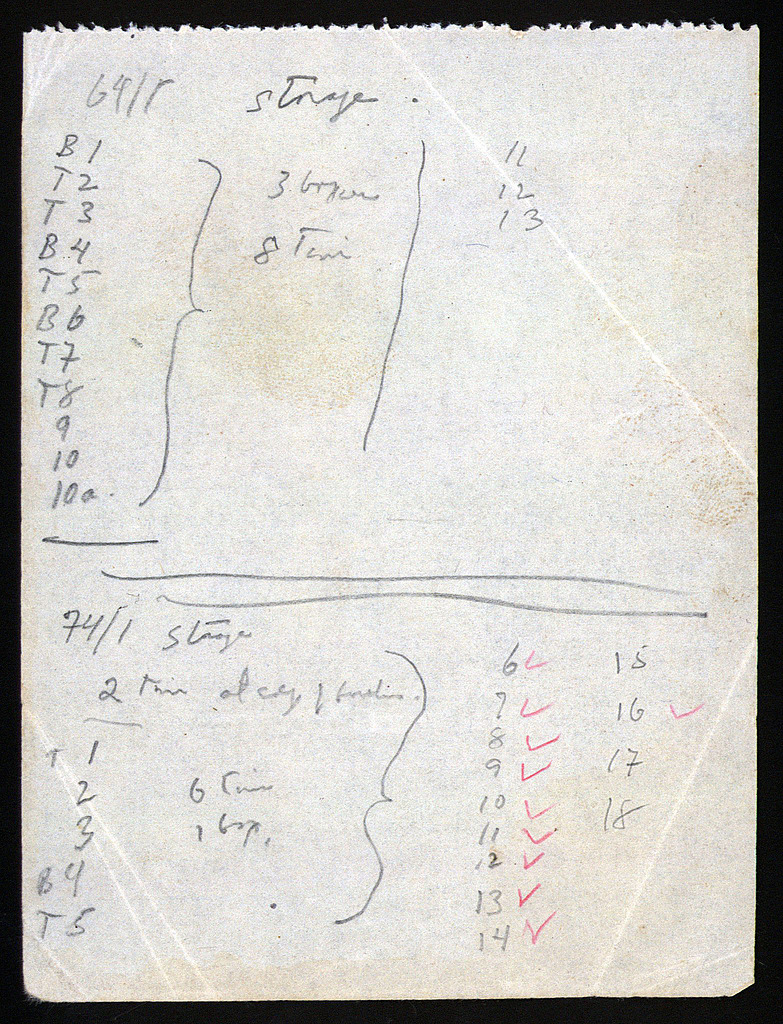 storage.
B 1
T 2
T 3
B 4
T 5
B 6
T 7
T 8
9
10
10a.
3 boxes
8 Tins
11
12
13
74/1 storage
2 Tins
T 1
2
3
B 4
T 5
6 Tins
1 box.
6 ✓
7 ✓
8 ✓
9 ✓
10 ✓
11 ✓
12 ✓
13 ✓
14 ✓
15
16 ✓
17
18